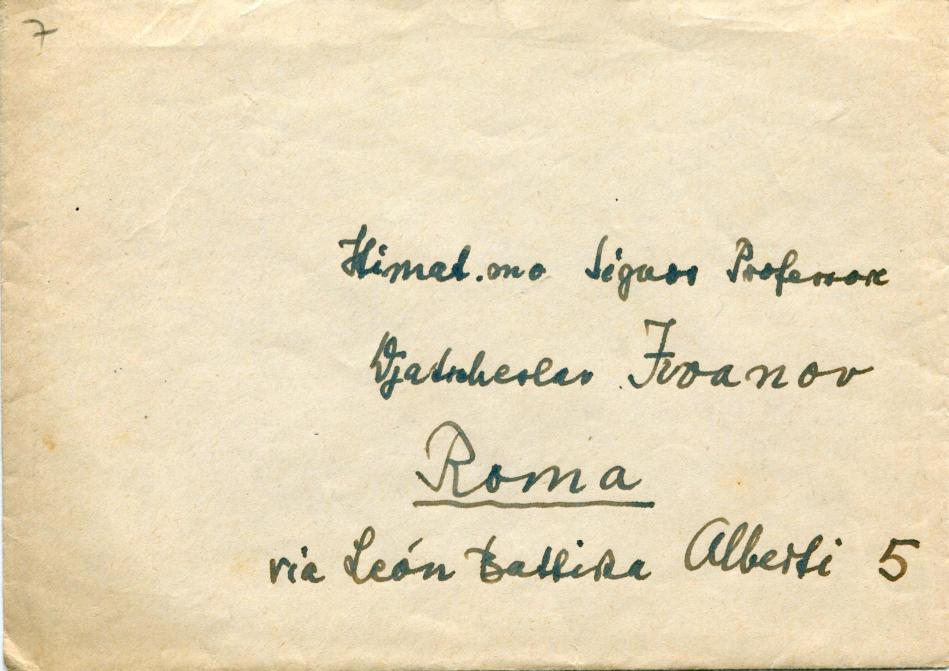 7
Stimat.mo Signor Professore
Vjatscheslav Ivanov
Roma
via León Battista Alberti 5